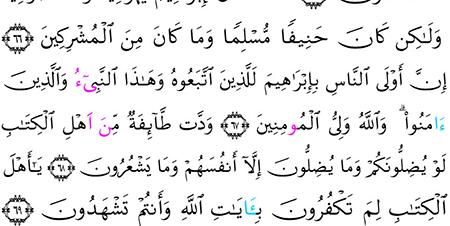 وَلَٰكِن كَانَ حَنِيفًا مُّسْلِمًا وَمَا كَانَ مِنَ ٱلْمُشْرِكِينَ ٦٦
إِنَّ أَوْلَى ٱلنَّاسِ بِإِبْرَاهِيمَ لَلَّذِينَ ٱتَّبَعُوهُ وَهَٰذَا ٱلنَّبِيٓءُ وَٱلَّذِينَ
ءَامَنُواْ ۗ وَٱللَّهُ وَلِيُّ ٱلْمُومِنِينَ ٦٧ وَدَّت طَّآئِفَةٌ مِّنَ اَهْلِ ٱلْكِتَٰبِ
لَوْ يُضِلُّونَكُمْ وَمَا يُضِلُّونَ إِلَّآ أَنفُسَهُمْ وَمَا يَشْعُرُونَ ٦٨ يَٰٓأَهْلَ
ٱلْكِتَٰبِ لِمَ تَكْفُرُونَ بِـَٔايَٰتِ ٱللَّهِ وَأَنتُمْ تَشْهَدُونَ ٦٩